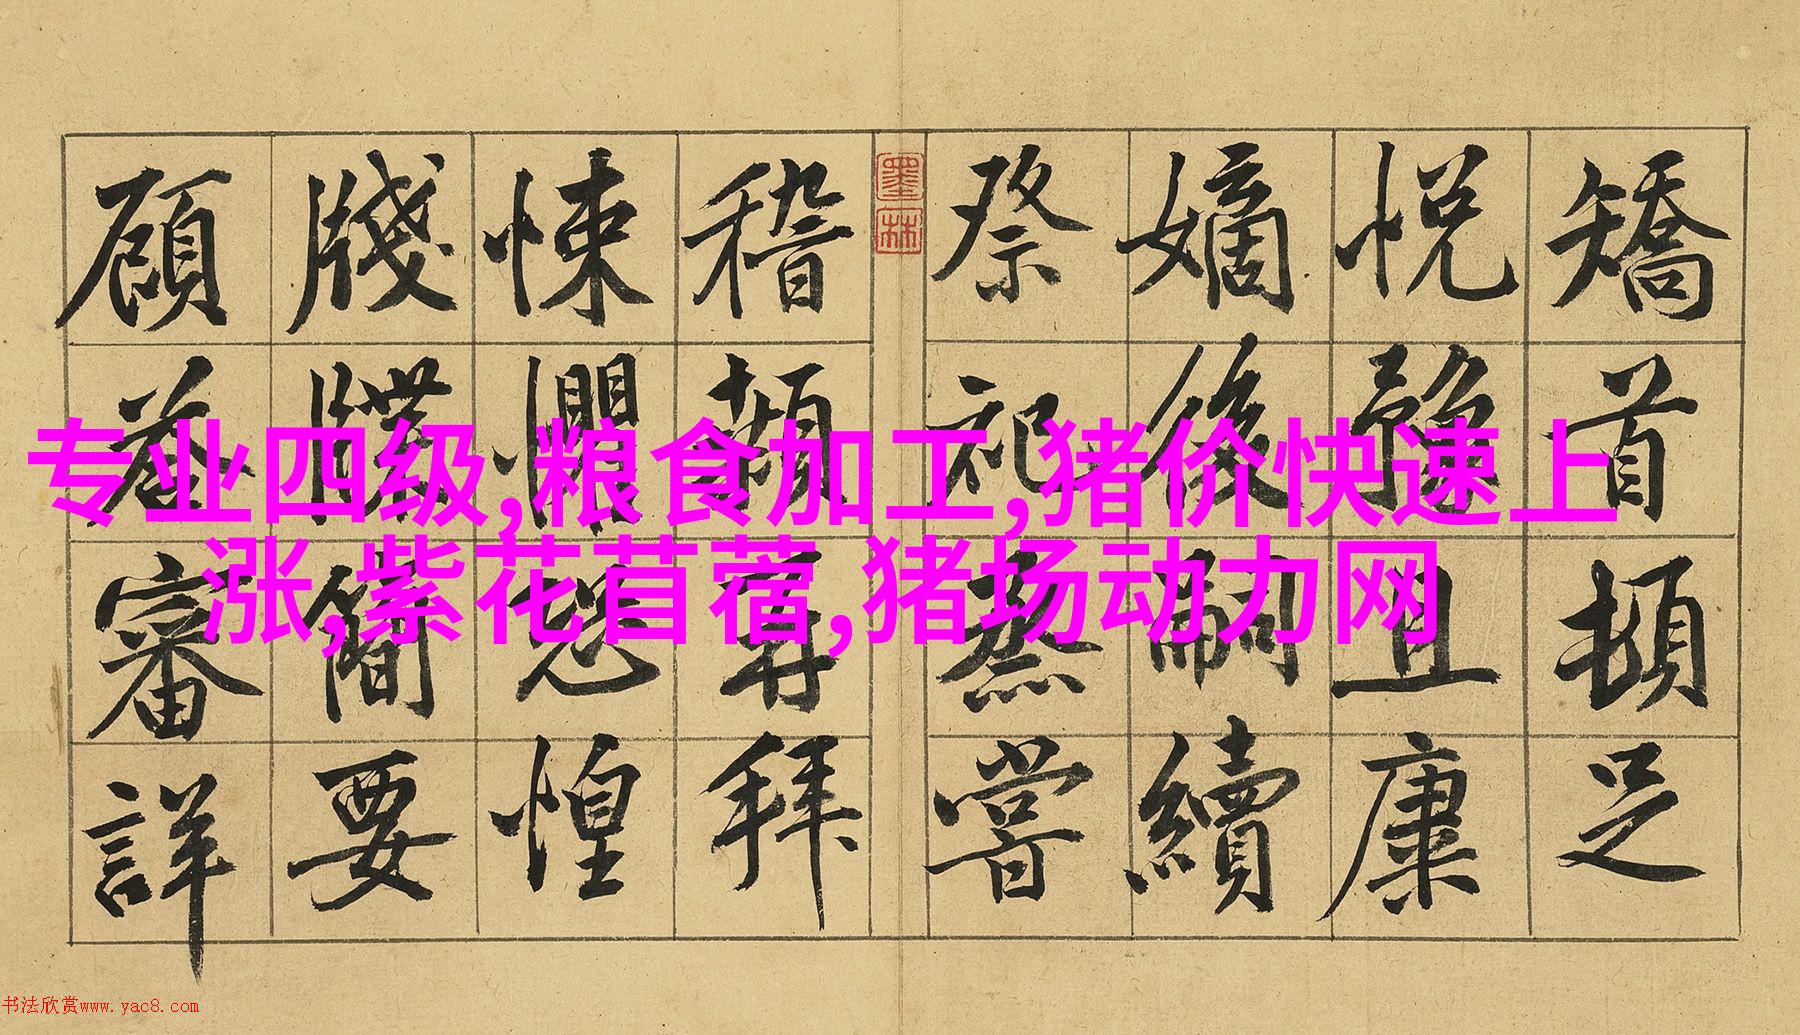 矯首頓足
悅豫且康
嫡後嗣續
祭祀蒸嘗
墨林
稽顙再拜
悚懼恐惶
牋牒簡要
顧荅審詳
专业四级,粮食加工,猪价快速上
涨,紫花苜蓿,猪场动力网
书法欣赏www.yac8.com